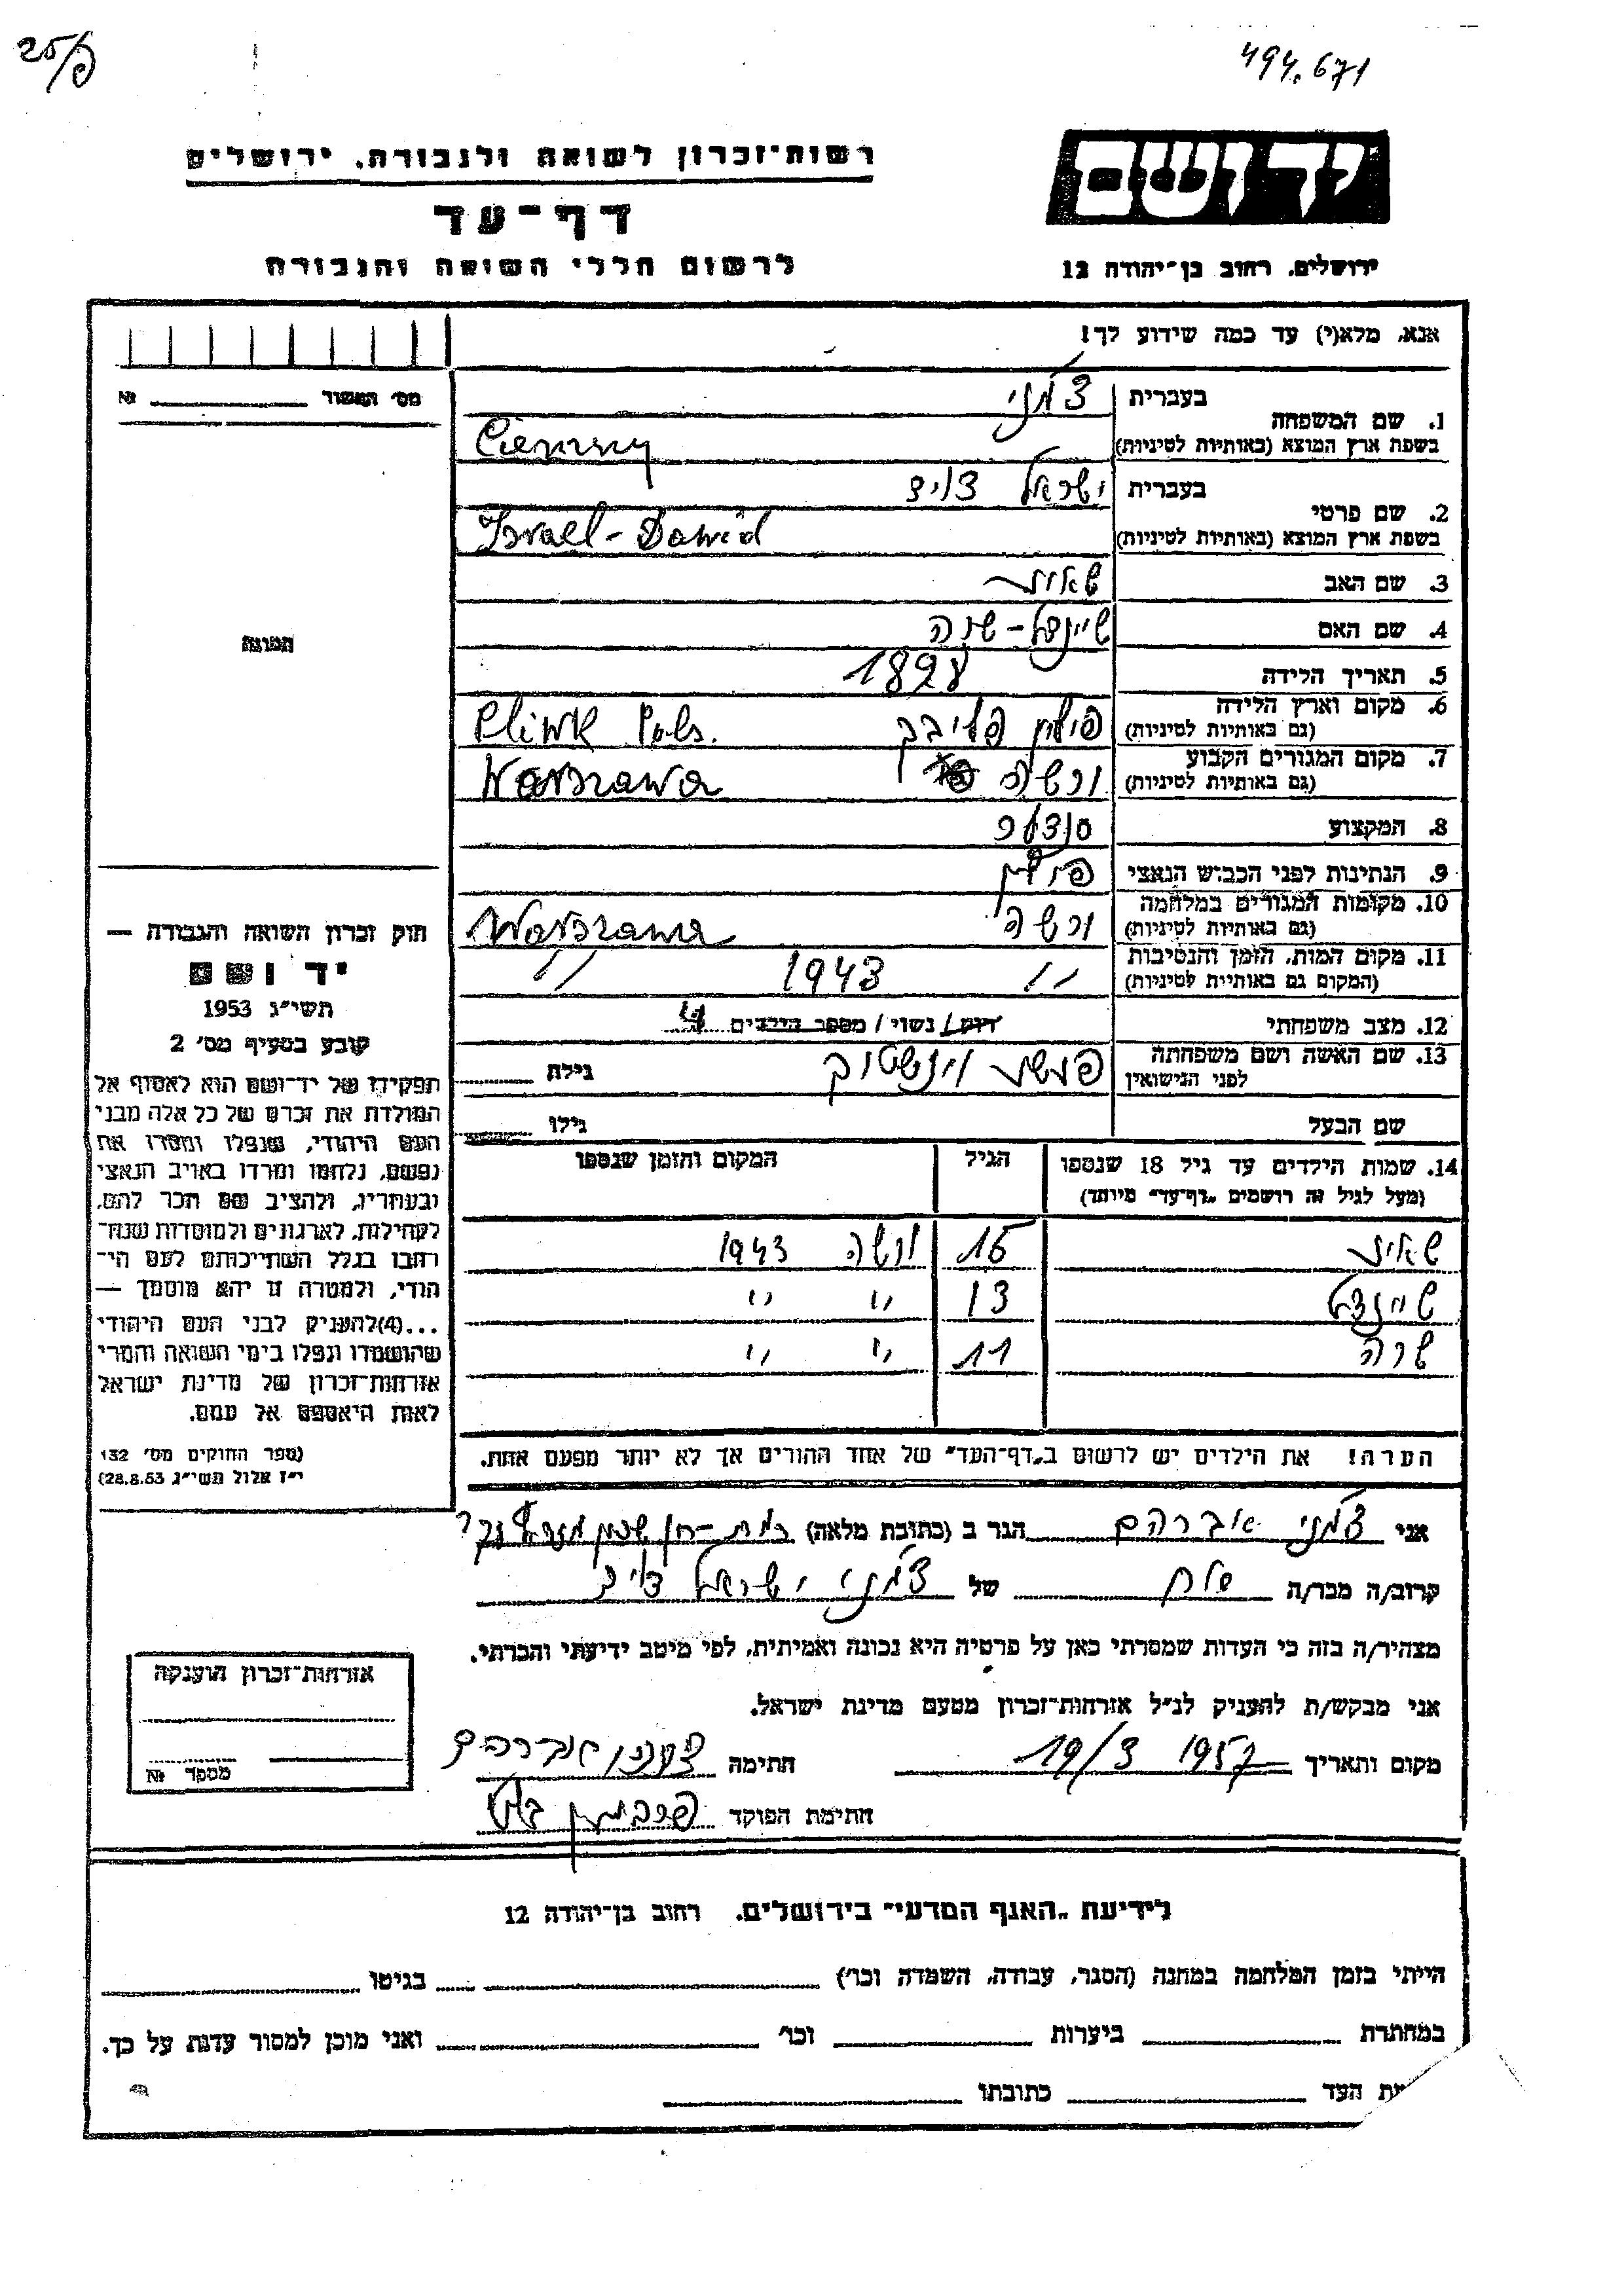 25/פ
494.671
יד ושם
רשות־זכרון לשואה ולגבורה. ירושלים
דף־עד
לרשום חללי השואה והגבורה
ירושלים. רחוב בן־יהודה 12
אנא, מלא(י) עד כמה שידוע לך!
מס' האשור № 
1. שם המשפחה
בעברית צ'מני
בשפת ארץ המוצא (באותיות לטיניות) Ciemny
2. שם פרטי
בעברית ישראל דויד
בשפת ארץ המוצא (באותיות לטיניות) Israel-Dawid
3. שם האב שאול
4. שם האם שיינדל-שרה
5. תאריך הלידה 1898
6. מקום וארץ הלידה
(גם באותיות לטיניות) פולין Pols.
7. מקום המגורים הקבוע
(גם באותיות לטיניות) ורשה Warszawa
8. המקצוע סנדלר
9. הנתינות לפני הכבוש הנאצי פולין
10. מקומות המגורים במלחמה
(גם באותיות לטיניות) ורשה Warszawa
11. מקום המות, הזמן והנסיבות
(המקום גם באותיות לטיניות) " 1943 "
12. מצב משפחתי רווק / נשוי / מספר הילדים
13. שם האשה ושם משפחתה
לפני הנישואין גילה
שם הבעל גילו
14. שמות הילדים עד גיל 18 שנספו הגיל המקום והזמן שנספו
(מעל לגיל זה רושמים "דף־עד" מיוחד)
שאול 15 ורשה 1943
שיינדל 13 " "
שרה 11 " "
הערה! את הילדים יש לרשום ב"דף־העד" של אחד ההורים אך לא יותר מפעם אחת.
התמונה
חוק זכרון השואה והגבורה —
יד ושם
תשי"ג 1953
קובע בסעיף מס' 2
תפקידו של יד־ושם הוא לאסוף אל
המולדת את זכרם של כל אלה מבני
העם היהודי, שנפלו ומסרו את
נפשם, נלחמו ומרדו באויב הנאצי
ובעוזריו, ולהציב שם וזכר להם,
לקהילות, לארגונים ולמוסדות שנח־
רבו בגלל השתייכותם לעם הי־
הודי, ולמטרה זו יהא מוסמך —
...(4) להעניק לבני העם היהודי
שהושמדו ונפלו בימי השואה והמרי
אזרחות־זכרון של מדינת ישראל
לאות היאספם אל עמם.
(ספר החוקים מס' 132
י"ז אלול תשי"ג 28.8.53)
אני צ'מני אברהם הגר ב (כתובת מלאה) רמת-חן שכון
קרוב/ה מבר/ה של צ'מני ישראל דויד
מצהיר/ה בזה כי העדות שמסרתי כאן על פרטיה היא נכונה ואמיתית, לפי מיטב ידיעתי והכרתי.
אני מבקש/ת להעניק לנ"ל אזרחות־זכרון מטעם מדינת ישראל.
מקום ותאריך 19/3 1957 חתימה צ'מני אברהם
חתימת הפוקד
אזרחות־זכרון הוענקה
מספר №
לידיעת "האגף המדעי" בירושלים. רחוב בן־יהודה 12
הייתי בזמן המלחמה במחנה (הסגר, עבודה, השמדה וכו') בגיטו
במחתרת ביערות וכו' ואני מוכן למסור עדות על כך.
העד כתובתו